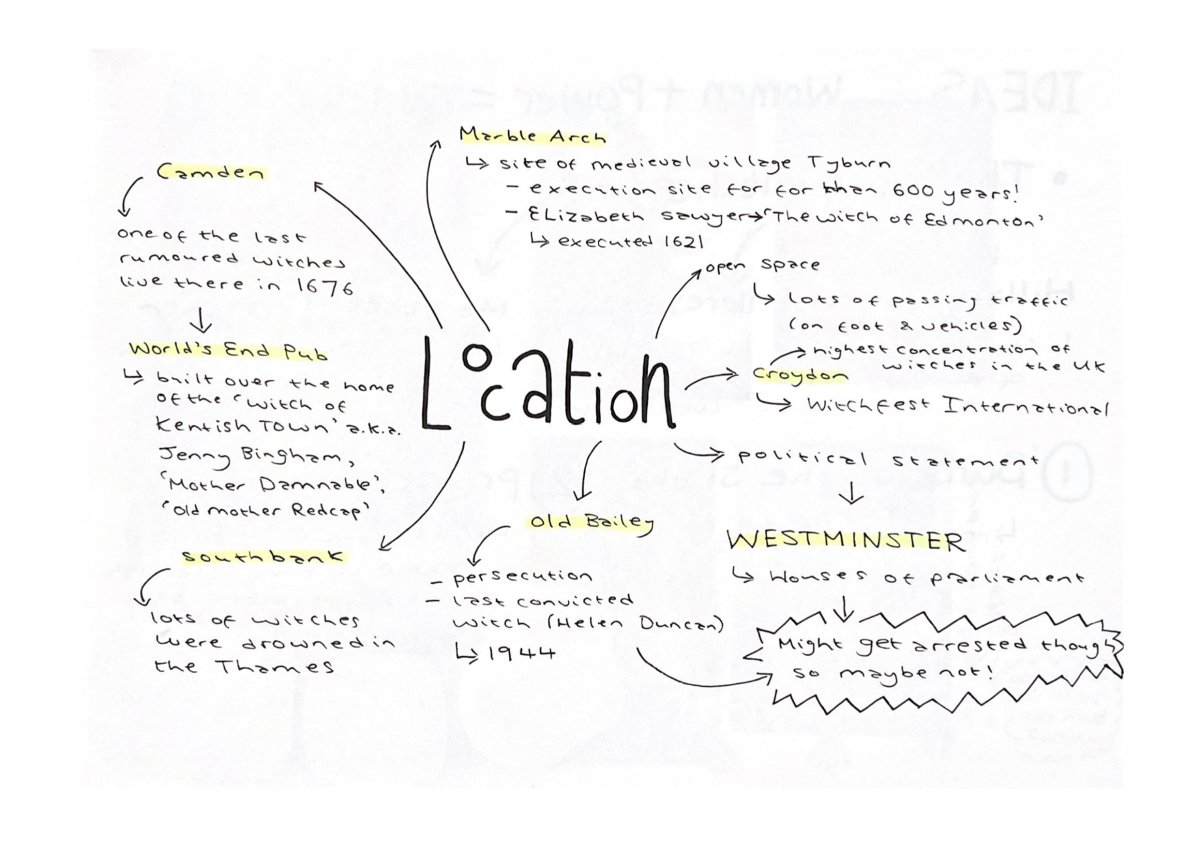 Location
Marble Arch
↳ site of medieval village Tyburn
- execution site for for than 600 years!
- Elizabeth Sawyer→'The Witch of Edmonton'
↳ executed 1621
Camden
one of the last
rumoured witches
live there in 1676
World's End Pub
↳ built over the home
of the 'witch of
Kentish Town' a.k.a.
Jenny Bingham,
'Mother Damnable',
'Old mother Redcap'
Southbank
lots of witches
were drowned in
the Thames
Old Bailey
- persecution
- last convicted
witch (Helen Duncan)
↳ 1944
open space
↳ lots of passing traffic
(on foot & vehicles)
Croydon
→ highest concentration of
witches in the UK
↳ Witchfest International
political statement
WESTMINSTER
↳ Houses of parliament
Might get arrested though
so maybe not!
IDEAS
Women + Power =